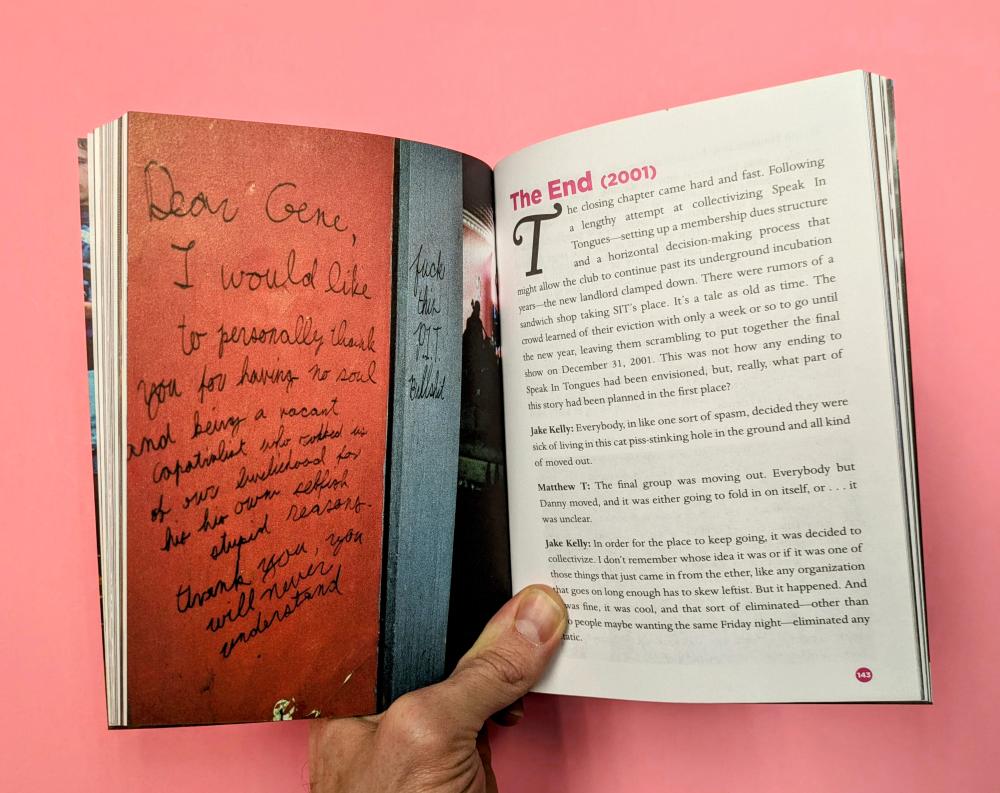 Dear Gene,
I would like
to personally thank
you for having no soul
and being a vacant
capatrialist who robbed us
of our livelihood for
his his own selfish
stupid reasons.
thank you, you
will never
understand
fuck
this
P.I.T.
Bullshit
The End (2001)
The closing chapter came hard and fast. Following
a lengthy attempt at collectivizing Speak In
Tongues—setting up a membership dues structure
and a horizontal decision-making process that
might allow the club to continue past its underground incubation
years—the new landlord clamped down. There were rumors of a
sandwich shop taking SIT's place. It's a tale as old as time. The
crowd learned of their eviction with only a week or so to go until
the new year, leaving them scrambling to put together the final
show on December 31, 2001. This was not how any ending to
Speak In Tongues had been envisioned, but, really, what part of
this story had been planned in the first place?
Jake Kelly: Everybody, in like one sort of spasm, decided they were
sick of living in this cat piss-stinking hole in the ground and all kind
of moved out.
Matthew T: The final group was moving out. Everybody but
Danny moved, and it was either going to fold in on itself, or . . . it
was unclear.
Jake Kelly: In order for the place to keep going, it was decided to
collectivize. I don't remember whose idea it was or if it was one of
those things that just came in from the ether, like any organization
that goes on long enough has to skew leftist. But it happened. And
was fine, it was cool, and that sort of eliminated—other than
people maybe wanting the same Friday night—eliminated any
143